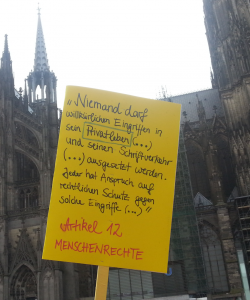 „Niemand darf
willkürlichen Eingriffen in
sein Privatleben (...)
und seinen Schriftverkehr
(...) ausgesetzt werden.
Jeder hat Anspruch auf
rechtlichen Schutz gegen
solche Eingriffe (...)"
Artikel 12
MENSCHENRECHTE